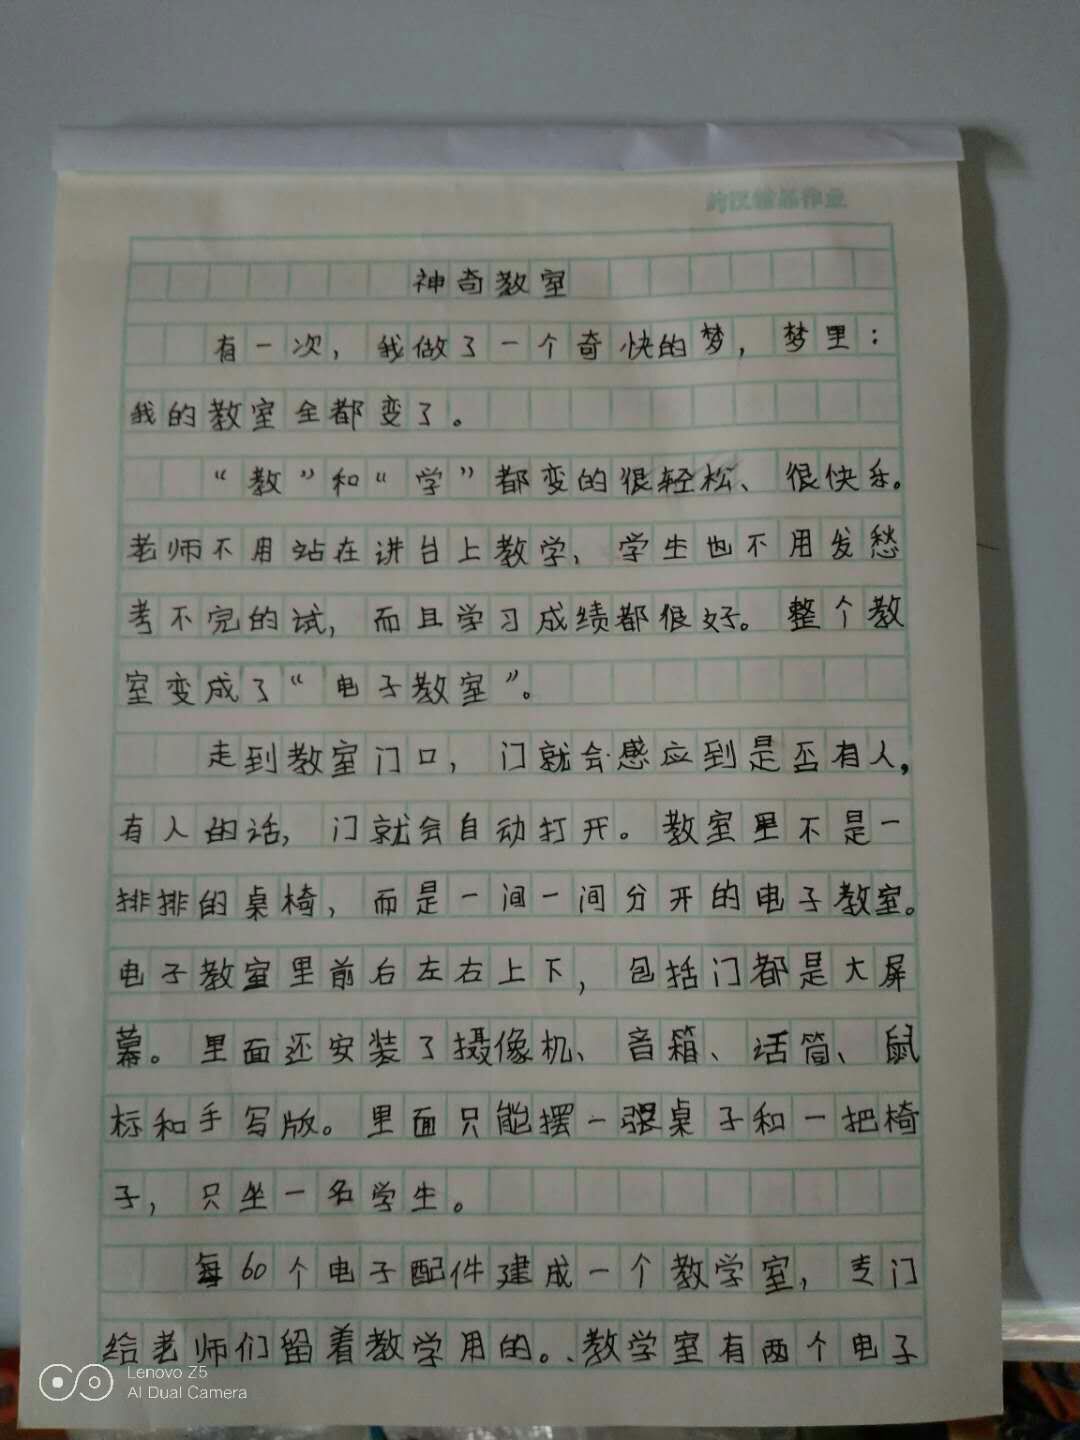 神奇教室
有一次，我做了一个奇快的梦，梦里：
我的教室全都变了。
“教”和“学”都变的很轻松、很快乐。
老师不用站在讲台上教学，学生也不用发愁
考不完的试，而且学习成绩都很好。整个教
室变成了“电子教室”。
走到教室门口，门就会感应到是否有人，
有人的话，门就会自动打开。教室里不是一
排排的桌椅，而是一间一间分开的电子教室。
电子教室里前后左右上下，包括门都是大屏
幕。里面还安装了摄像机、音箱、话筒、鼠
标和手写版。里面只能摆一张桌子和一把椅
子，只坐一名学生。
每60个电子配件建成一个教学室，专门
给老师们留着教学用的。、教学室有两个电子
Lenovo Z5
AI Dual Camera